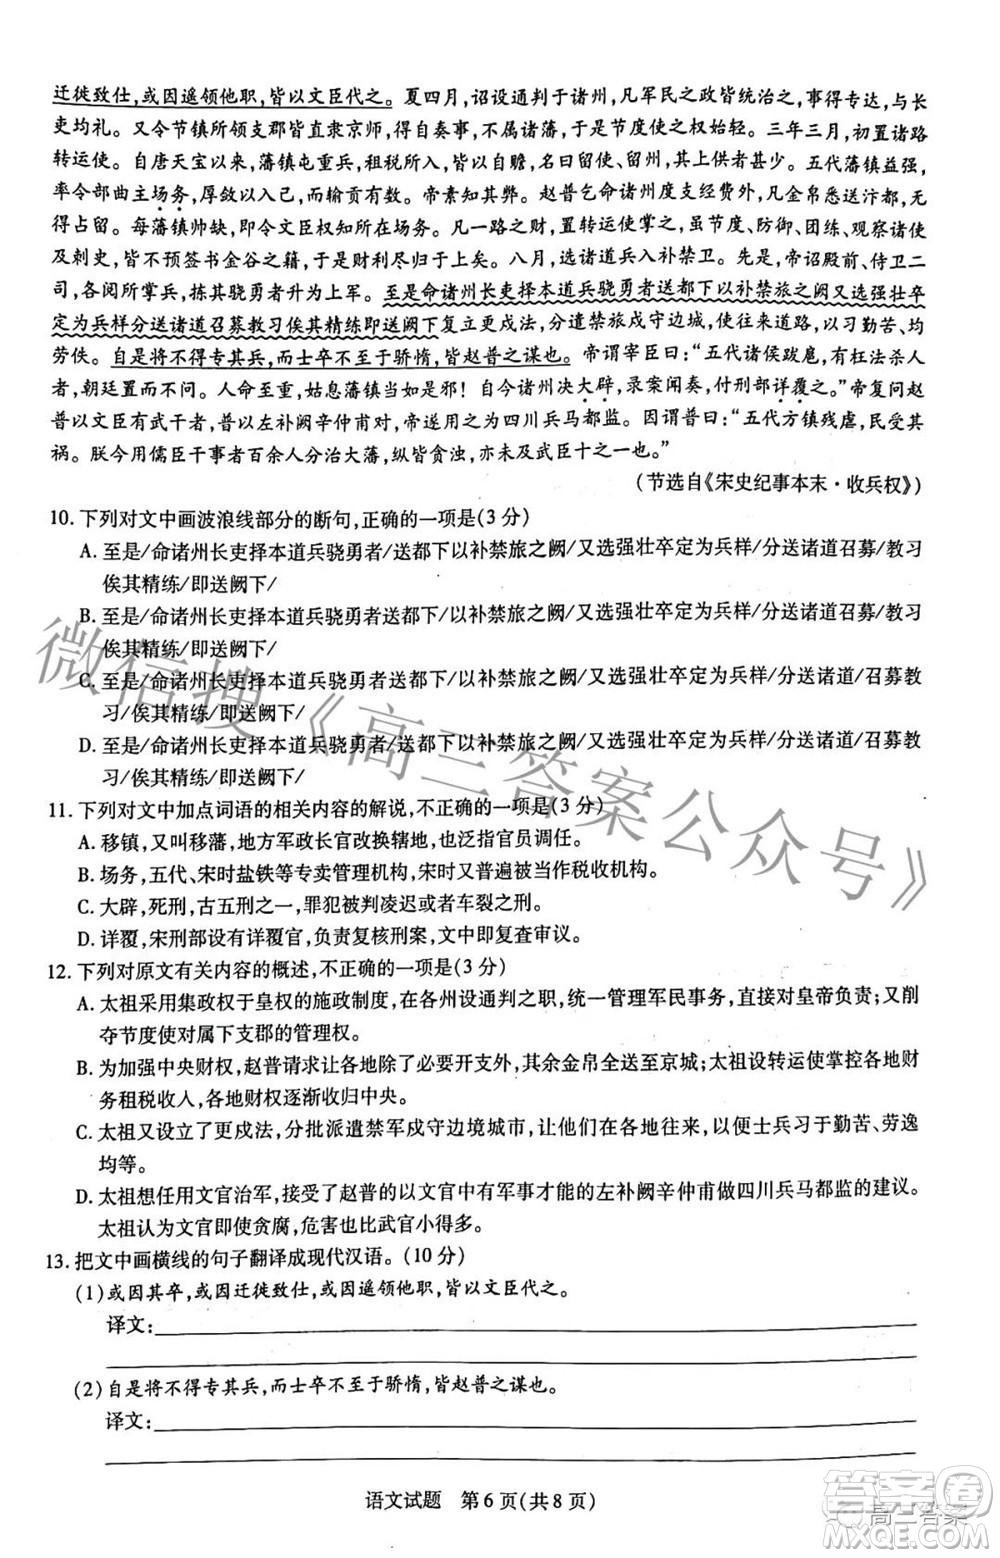 迁徙致仕,或因遥领他职,皆以文臣代之。夏四月,诏设通判于诸州,凡军民之政皆统治之,事得专达,与长
吏均礼。又令节镇所领支郡皆直隶京师,得自奏事,不属诸藩,于是节度使之权始轻。三年三月,初置诸路
转运使。自唐天宝以来,藩镇屯重兵,租税所入,皆以自赡,名曰留使、留州,其上供者甚少。五代藩镇益强,
率令部曲主场务,厚敛以入己,而输贡有数。帝素知其弊。赵普乞命诸州度支经费外,凡金帛悉送汴都,无
得占留。每藩镇帅缺,即令文臣权知所在场务。凡一路之财,置转运使掌之。虽节度、防御、团练、观察诸使
及刺史,皆不预签书金谷之籍,于是财利尽归于上矣。八月,选诸道兵入补禁卫。先是,帝诏殿前、侍卫二
司,各阅所掌兵,拣其骁勇者升为上军。至是命诸州长吏择本道兵骁勇者送都下以补禁旅之阙又选强壮卒
定为兵样分送诸道召募教习俟其精练即送阙下复立更戍法,分遣禁旅戍守边城,使往来道路,以习勤苦、均
劳佚。自是将不得专其兵,而士卒不至于骄惰,皆赵普之谋也。帝谓宰臣曰:“五代诸侯跋扈,有枉法杀人
者,朝廷置而不问。人命至重,姑息藩镇当如是邪!自今诸州决大辟,录案闻奏,付刑部详覆之。”帝复问赵
普以文臣有武干者,普以左补阙辛仲甫对,帝遂用之为四川兵马都监。因谓普曰:“五代方镇残虐,民受其
祸。朕今用儒臣干事者百余人分治大藩,纵皆贪浊,亦未及武臣十之一也。”
(节选自《宋史纪事本末·收兵权》)
10.下列对文中画波浪线部分的断句,正确的一项是(3分)
A.至是/命诸州长吏择本道兵骁勇者/送都下以补禁旅之阙/又选强壮卒定为兵样/分送诸道召募/教习
俟其精练/即送阙下/
B.至是/命诸州长吏择本道兵骁勇者送都下/以补禁旅之阙/又选强壮卒定为兵样/分送诸道召募/教习
俟其精练/即送阙下/
C.至是/命诸州长吏择本道兵骁勇者送都下/以补禁旅之阙/又选强壮卒定为兵样/分送诸道/召募教
习/俟其精练/即送阙下/
D.至是/命诸州长吏择本道兵骁勇者/送都下以补禁旅之阙/又选强壮卒定为兵样/分送诸道/召募教
习/俟其精练/即送阙下/
11.下列对文中加点词语的相关内容的解说,不正确的一项是(3分)
A.移镇,又叫移藩,地方军政长官改换辖地,也泛指官员调任。
B.场务,五代、宋时盐铁等专卖管理机构,宋时又被当作税收机构。
C.大辟,死刑,古五刑之一,罪犯被判凌迟或者车裂之刑。
D.详覆,宋刑部设有详覆官,负责复核刑案,文中即复查审议。
12.下列对原文有关内容的概述,不正确的一项是(3分)
A.太祖采用集政权于皇权的施政制度,在各州设通判之职,统一管理军民事务,直接对皇帝负责;又削
夺节度使对属下支郡的管理权。
B.为加强中央财权,赵普请求让各地除了必要开支外,其余金帛全送至京城;太祖设转运使掌控各路财
务租税收入,各地财权逐渐收归中央。
C.太祖又设立了更戍法,分批派遣禁军戍守边境城市,让他们在各地来往,以便士兵习于勤苦、劳逸
均等。
D.太祖想任用文官治军,接受了赵普的以文官中有军事才能的左补阙辛仲甫做四川兵马都监的建议。
太祖认为文官即使贪腐,危害也比武官小得多。
13.把文中画横线的句子翻译成现代汉语。(10分)
(1)或因其卒,或因迁徙致仕,或因遥领他职,皆以文臣代之。
译文:
(2)自是将不得专其兵,而士卒不至于骄惰,皆赵普之谋也。
译文:
语文试题 第6页(共8页)
微信搜《高三答案公众号》
答案圈
高三答案
MXQE.COM